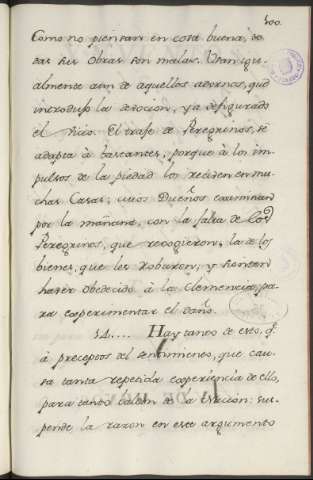 100.
Como no piensan en cosa buena, to
das sus obras son malas. Usan igu
almente aun de aquellos adornos, que
introdujo la devoción, y a desfigurado
el vicio. El traje de Peregrinos, se
adapta à bastantes, porque à los im
pulsos de la piedad los reciben en mu
chas Casas, cuios Dueños caminan
por la mañana, con la falta de los
Peregrinos, que recogieron, la de los
bienes, que les robaron, y
haver obedecido à la Clemencia, pa
ra experimentar el daño.
54.... Hay tanto de esto, q.
à preceptos del sentimiento, que cau
sa tanta repetida experiencia de ello,
para tanto de la Nación: sus
pende la razon en este argumento